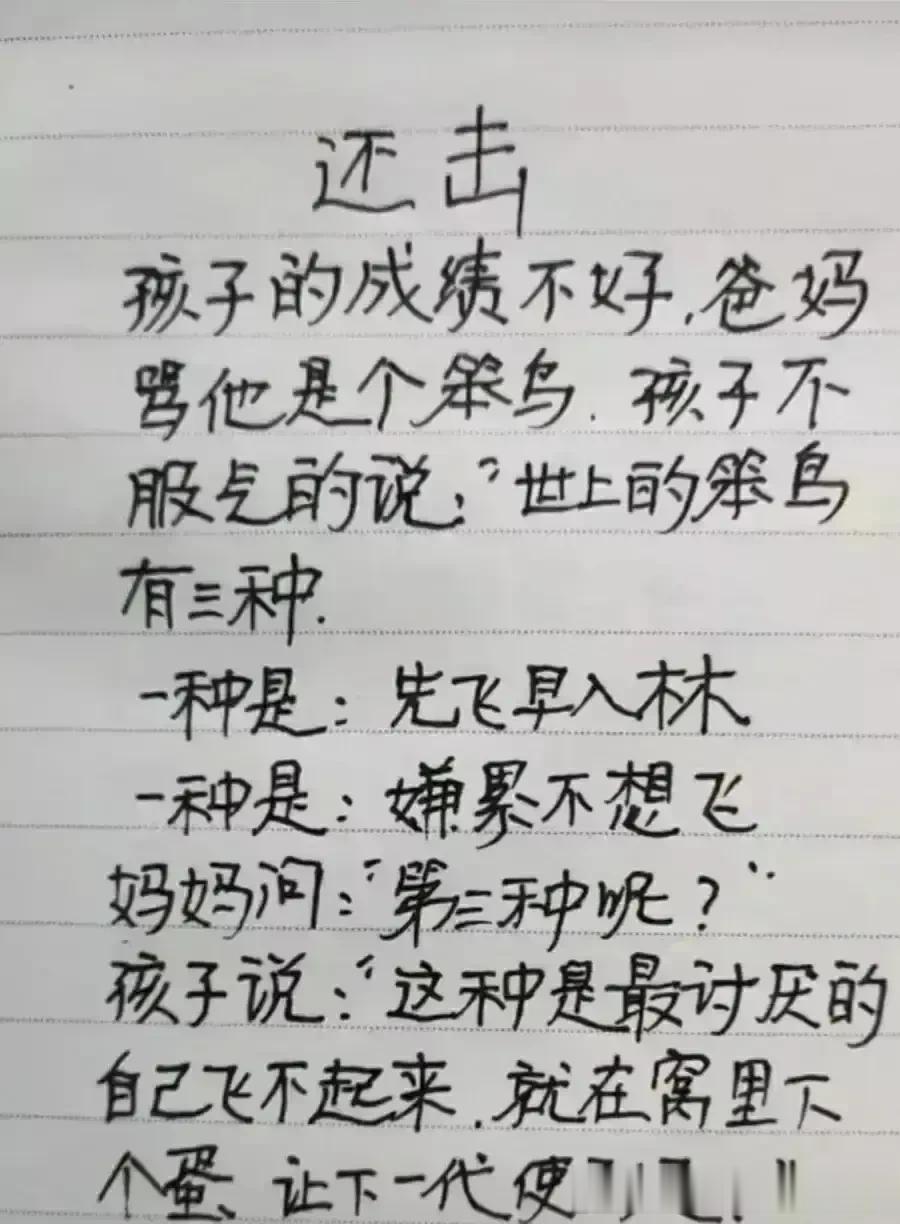 还击
孩子的成绩不好.爸妈
骂他是个笨鸟.孩子不
服气的说:"世上的笨鸟
有三种.
一种是:先飞早入林
一种是:嫌累不想飞
妈妈问:"第三种呢?"
孩子说:"这种是最讨厌的
自己飞不起来.就在窝里下
个蛋、让下一代使